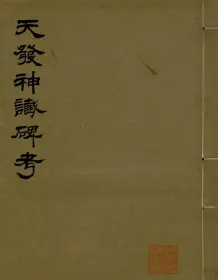 天發神讖碑考